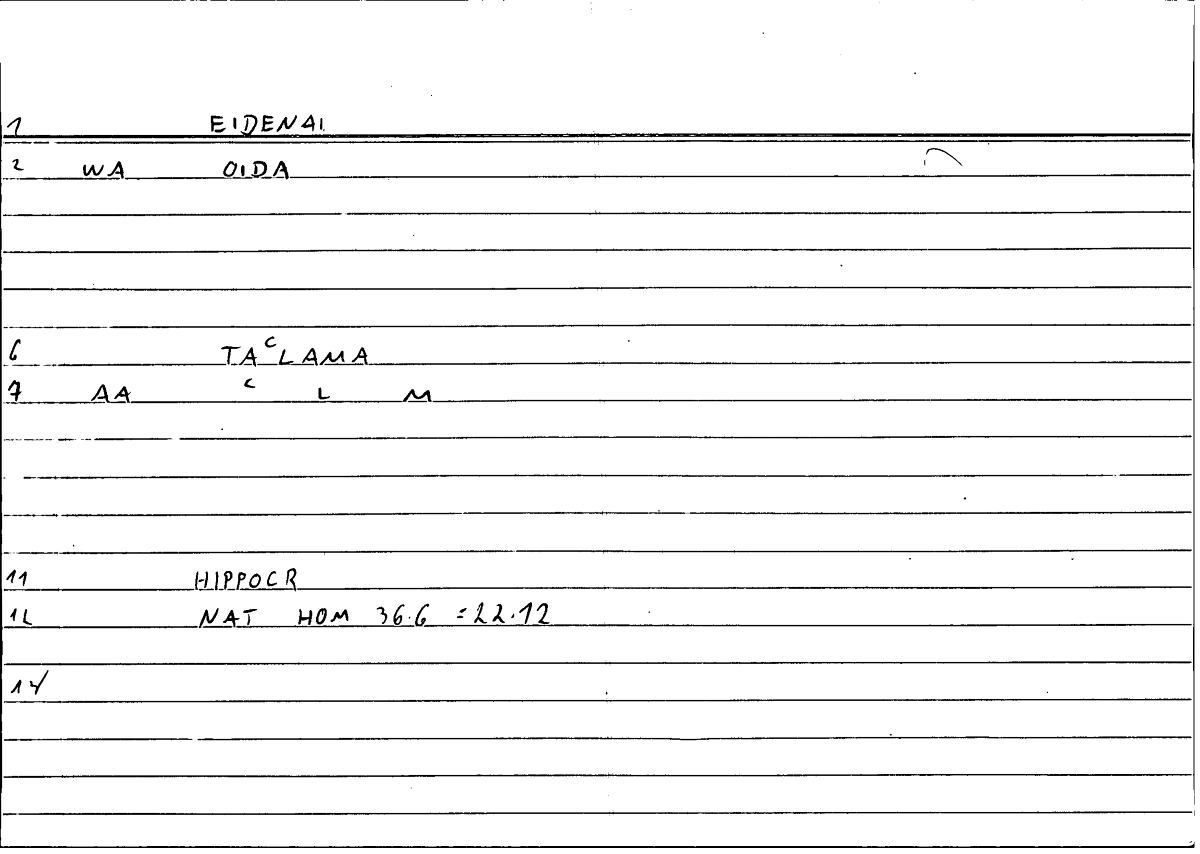 1 EIDENAI
2 WA OIDA
6 TACLAMA
7 AA C L M
11 HIPPOCR
12 NAT HOM 36.6 = 22.12
14